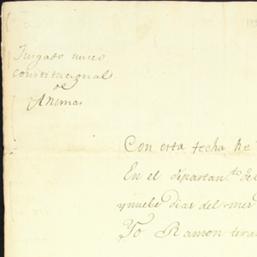 Juzgado unico
constitucional
de
Animas
Con esta fecha he
En el departanto de
ynueve dias del mes
Yo Ramon tera